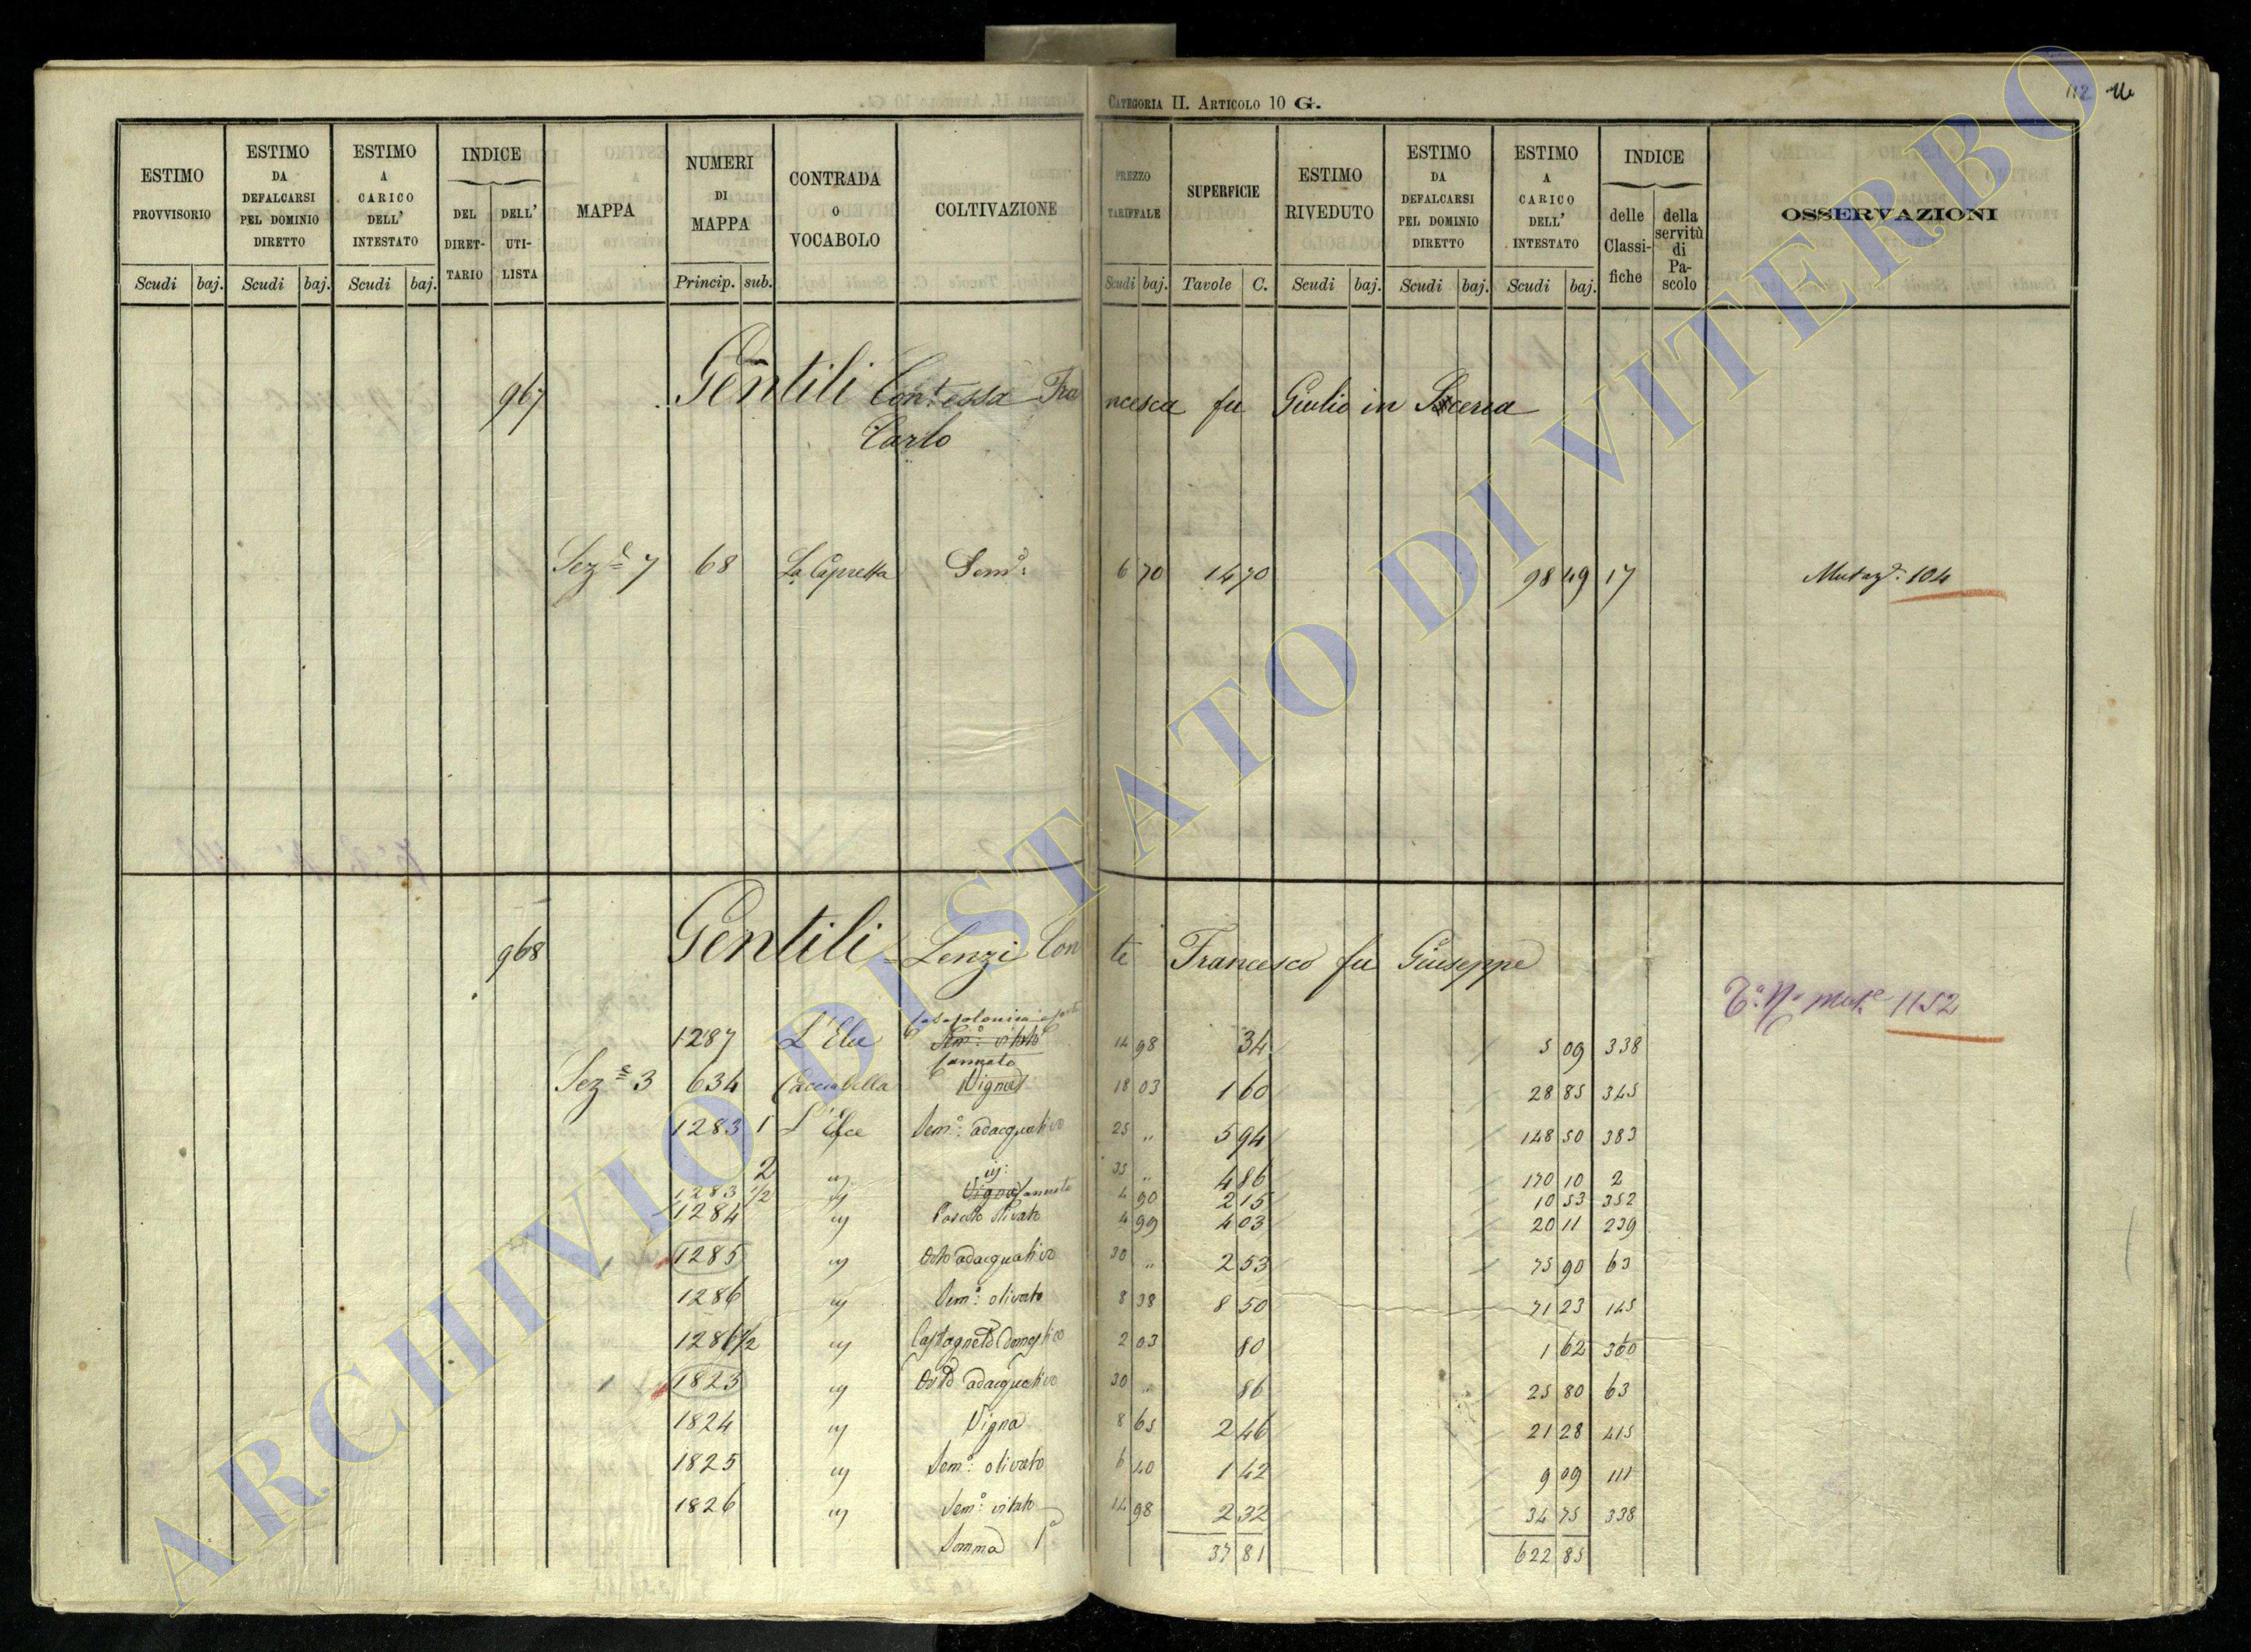 CATEGORIA II. ARTICOLO 10 G.
112
ESTIMO PROVVISORIO
ESTIMO DA DEFALCARSI PEL DOMINIO DIRETTO
ESTIMO A CARICO DELL' INTESTATO
INDICE
DEL DIRET-TARIO
DELL' UTI-LISTA
MAPPA
NUMERI DI MAPPA
CONTRADA O VOCABOLO
COLTIVAZIONE
PREZZO TARIFFALE
SUPERFICIE
ESTIMO RIVEDUTO
ESTIMO DA DEFALCARSI PEL DOMINIO DIRETTO
ESTIMO A CARICO DELL' INTESTATO
INDICE
delle Classi-fiche
della servitù di Pa-scolo
OSSERVAZIONI
Scudi baj. Scudi baj. Scudi baj. Princip. sub. Scudi baj. Tavole C. Scudi baj. Scudi baj. Scudi baj.
967 Gentili Contessa Francesca fu Giulio in
Carlo
Sez.e 7 68 La Capretta Sem.o: 6 70 14 70 98 49 17 Mutaz.e 104
968 Gentili=Lenzi Conte Francesco fu Giuseppe
1152
1287 L'Elce Sem.o: vitato 14 98 34 5 09 338
canneto
Sez.e 3 634 Cacciabella Vigna 18 03 1 60 28 85 345
1283 1 L'Elce Sem.o: adacquativo 25 " 5 94 148 50 383
2 " 35 " 4 86 170 10 2
1283 1/2 " Vigna canneto 4 90 2 15 10 53 352
1284 " Pascolo olivato 4 99 4 03 20 11 239
1285 " Orto adacquativo 30 " 2 53 75 90 63
1286 " Sem.o: olivato 8 38 8 50 71 23 145
1286 1/2 " Castagneto domestico 2 03 80 1 62 360
1823 " Orto adacquativo 30 " 86 25 80 63
1824 " Vigna 8 65 2 46 21 28 415
1825 " Sem.o: olivato 6 40 1 42 9 09 111
1826 " Sem.o: vitato 14 98 2 32 34 75 338
Somma 1a 37 81 622 85
ARCHIVIO DI STATO DI VITERBO